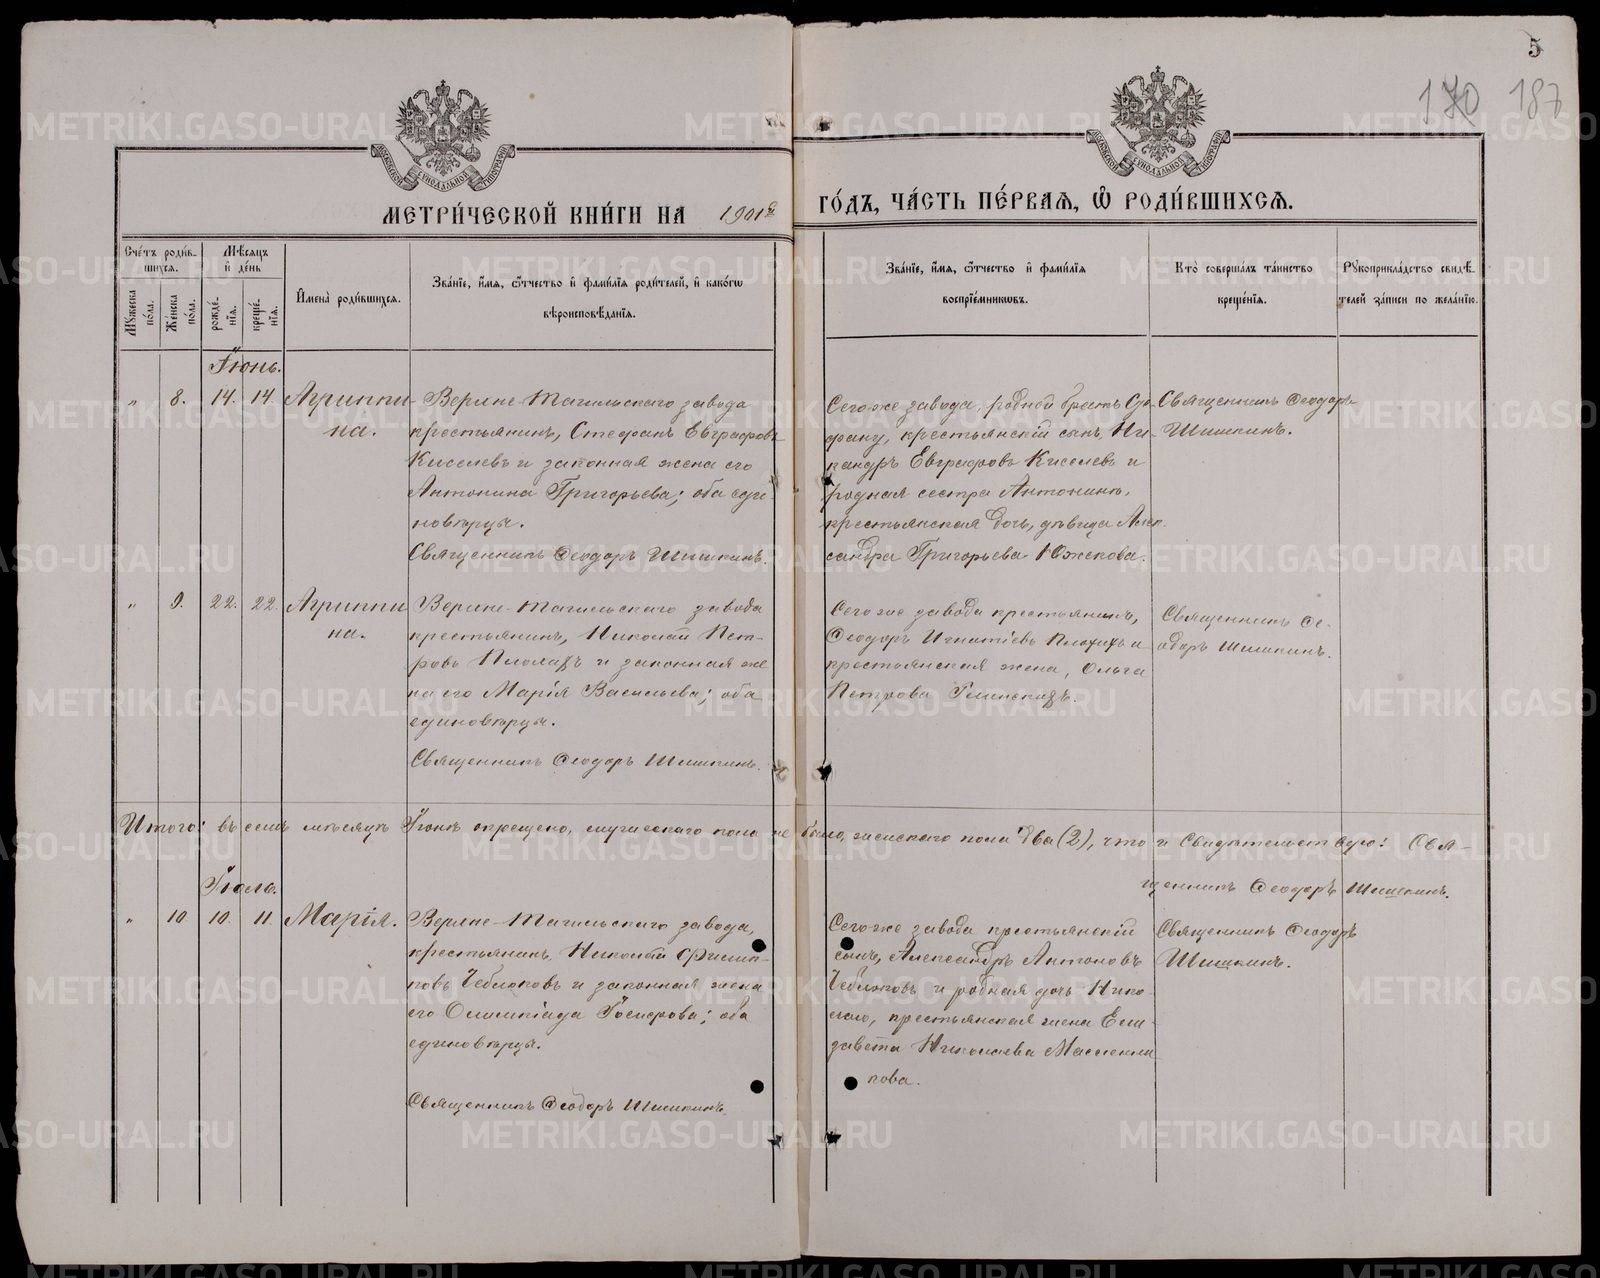 5
170 187
МЕТРИ́ЧЕСКОЙ КНИ́ГИ НА 1901й ГО́ДЪ, ЧА́СТЬ ПЕ́РВАЯ, Ѽ РОДИ́ВШИХСЯ.
Сче́тъ роди́в-
шихся.
Мѣ́сяцъ
и҆ де́нь
Мꙋ́жеска
по́ла.
Же́нска
по́ла.
рожде́-
нїя.
креще́-
нїя.
И҆мена̀ роди́вшихся.
Зва́нїе, и҆́мя, ѻ҆́тчество и҆ фами́лїя роди́телей, и҆ како́гѡ
вѣроисповѣ́данїя.
Зва́нїе, и҆́мя, ѻ҆́тчество и҆ фами́лїя
воспрїе́мниковъ.
Кто̀ соверша́лъ та́инство
креще́нїя.
Рꙋкоприкла́дство свидѣ́-
телей за́писи по жела́нїю.
Іюнь.
„ 8. 14. 14. Агриппи-
на.
Верхне-Тагильскаго завода
крестьянинъ, Стефанъ Евграфовъ
Киселевъ и законная жена его
Антонина Григорьева; оба еди-
новѣрцы.
Священникъ Ѳеодоръ Шишкинъ.
Сего же завода, родной братъ Сте-
фану, крестьянскій сынъ, Ни-
кандръ Евграфовъ Киселевъ и
родная сестра Антонинѣ,
крестьянская дочь, дѣвица Алек-
сандра Григорьева Южакова.
Священникъ Ѳеодоръ
Шишкинъ.
„ 9. 22. 22. Агриппи
на.
Верхне-Тагильскаго завода
крестьянинъ, Николай Пет-
ровъ Плохихъ и законная же
на его Марія Васильева; оба
единовѣрцы.
Священникъ Ѳеодоръ Шишкинъ.
Сего же завода крестьянинъ,
Ѳеодоръ Игнатіевъ Плохихъ и
крестьянская жена, Ольга
Петрова Глинскихъ.
Священникъ Ѳе-
одоръ Шишкинъ.
Итого: въ семъ мѣсяцѣ Іюнѣ крещено, мужескаго пола не было, женскаго пола два (2), что и свидѣтельствую: Свя-
щенникъ Ѳеодоръ Шишкинъ.
Іюль.
„ 10 10. 11. Марія.
Верхне-Тагильскаго завода,
крестьянинъ, Николай Филип-
повъ Чеблоковъ и законная жена
его Олимпіада Іосифова; оба
единовѣрцы.
Священникъ Ѳеодоръ Шишкинъ.
Сего же завода крестьянскій
сынъ, Александръ Антоновъ
Чеблоковъ и родная дочь Нико-
лаю, крестьянская жена Ели-
завета Николаева Масленни-
кова.
Священникъ Ѳеодоръ
Шишкинъ.
METRIKI.GASO-URAL.RU